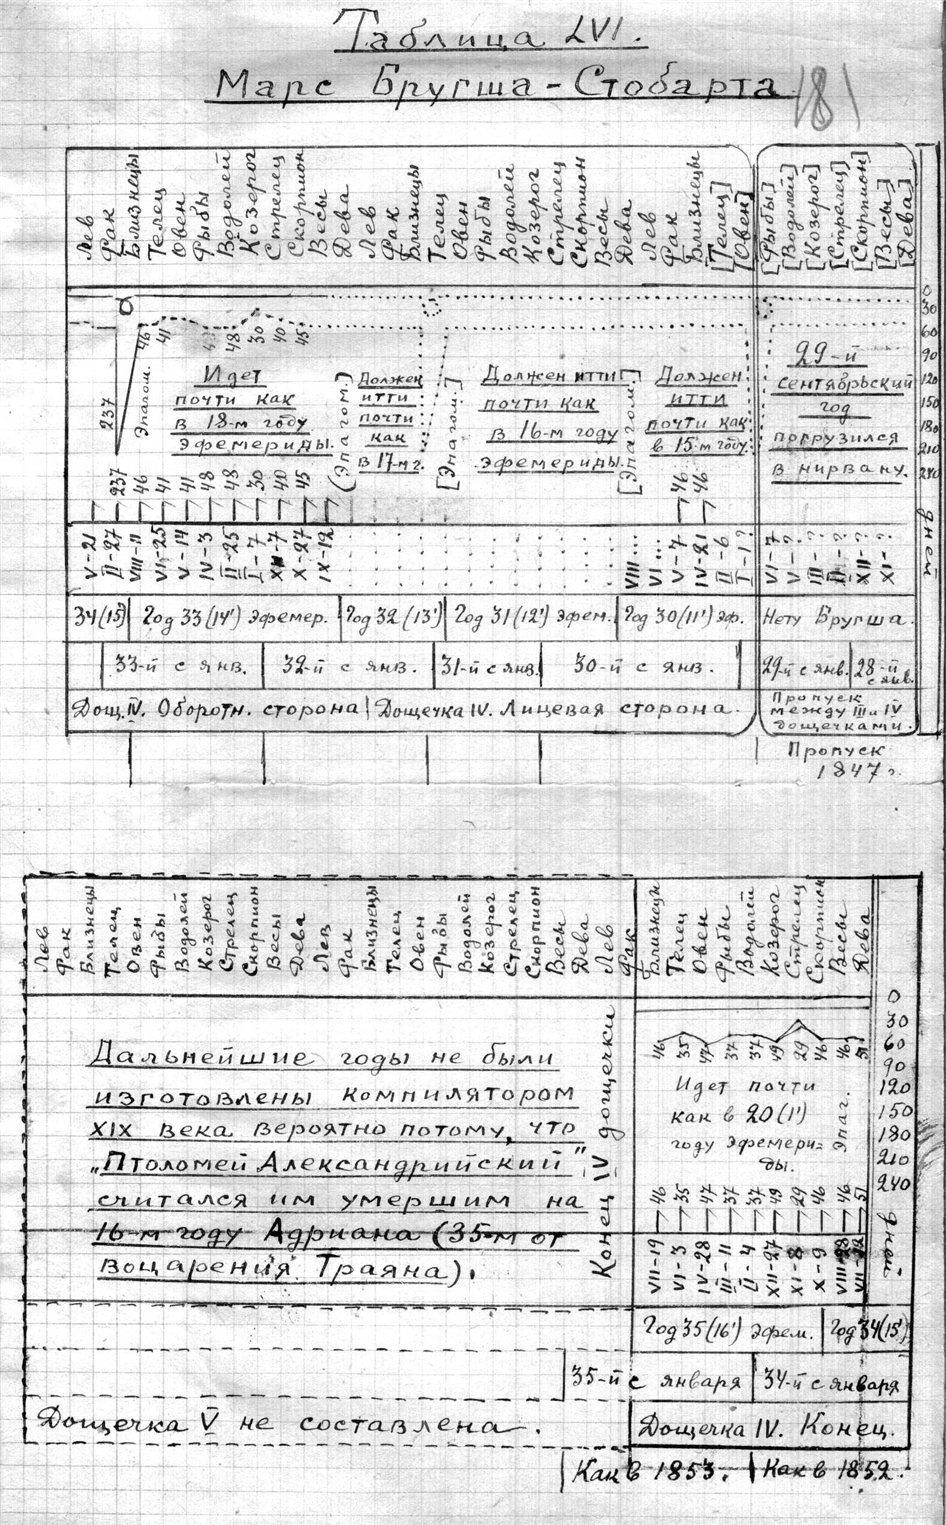 Таблица LVI.
Марс Бругша-Стобарта
181
Лев
Фак
Близнецы
Телец
Овен
Рыбы
Водолей
Козерог
Стрелец
Скорпион
Весы
Дева
Лев
Фак
Близнецы
Телец
Овен
Рыбы
Водолей
Козерог
Стрелец
Скорпион
Весы
Дева
Лев
Фак
Близнецы
[Телец]
[Овен]
[Рыбы]
[Водолей]
[Козерог]
[Стрелец]
[Скорпион]
[Весы]
[Дева]
0
30
60
90
120
150
180
210
240
дней
237
Эпагом.
46
41
48
30
40
45
Идет
почти как
в 18-м году
эфемериды.
(Эпагом.)
Должен
итти
почти
как
в 17-м г.
[Эпагом.]
Должен итти
почти как
в 16-м году
эфемериды.
[Эпагом.]
Должен
итти
почти как
в 15-м году.
29-й
сентябрьский
год
погрузился
в нирвану.
237
46
41
41
48
48
30
40
45
46
46
V-21
II-27
VIII-11
VI-25
V-14
IV-3
II-25
I-7
XII-7
X-27
IX-12
VIII...
VI...
V-7
IV-21
II-6
I-1?
VI-?
V-?
III-?
II-?
XII-?
XI-?
34(15)
Год 33(14') эфемер.
Год 32(13')
Год 31(12') эфем.
Год 30(11') эф.
Нету Бругша.
33-й с янв.
32-й с янв.
31-й с янв.
30-й с янв.
29-й с янв.
28-й с янв.
Дощ. IV. Оборотн. сторона
Дощечка IV. Лицевая сторона.
Пропуск
между III и IV
дощечками.
Пропуск
1847 г.
Лев
Фак
Близнецы
Телец
Овен
Рыбы
Водолей
Козерог
Стрелец
Скорпион
Весы
Дева
Лев
Фак
Близнецы
Телец
Овен
Рыбы
Водолей
Козерог
Стрелец
Скорпион
Весы
Дева
Лев
Фак
Близнецы
Телец
Овен
Рыбы
Водолей
Козерог
Стрелец
Скорпион
Весы
Дева
0
30
60
90
120
150
180
210
240
дней.
Дальнейшие годы не были
изготовлены компилятором
XIX века вероятно потому, что
„Птоломей Александрийский"
считался им умершим на
16-м году Адриана (35-м от
воцарения Траяна).
Конец IV дощечки
46
35
47
37
37
49
29
46
46
51
Идет почти
как в 20(1')
году эфемери=
ды.
Эпаг.
46
35
47
37
37
49
29
46
46
51
VII-19
VI-3
IV-28
III-11
II-4
XII-27
XI-8
X-9
VIII-28
VII-22
Год 35(16') эфем.
Год 34(15')
35-й с января
34-й с января
Дощечка V не составлена.
Дощечка IV. Конец.
Как в 1853.
Как в 1852.